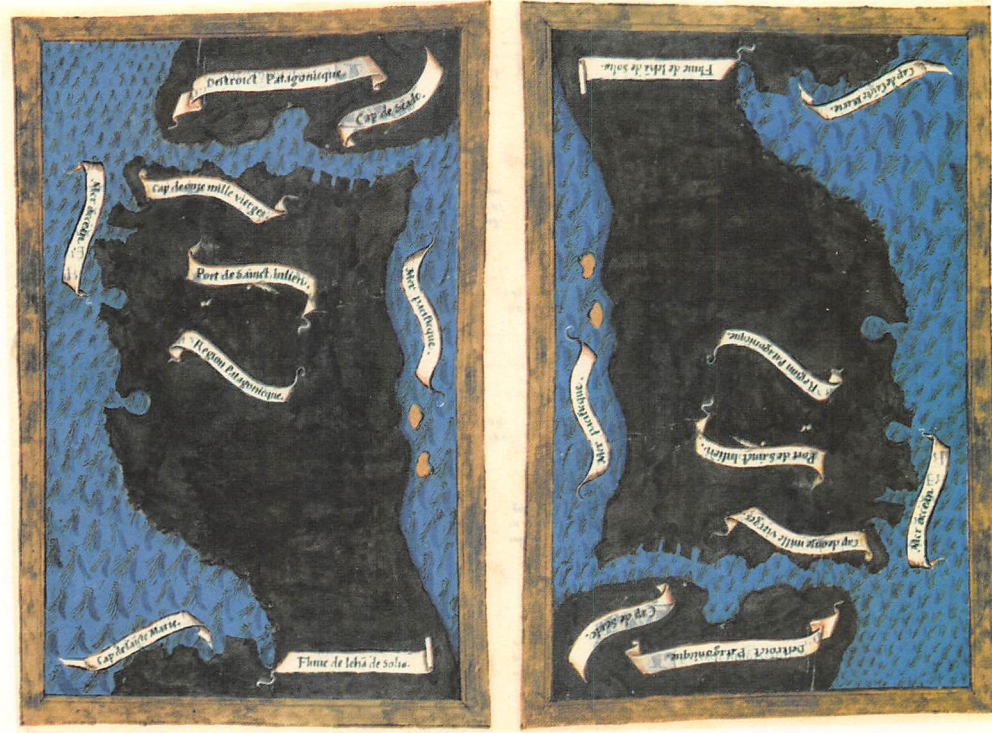 Destroict Patagonicque.
Cap de Seste.
Cap de onze mille vierges
Mer occean.
Port de Sainct Iulien.
Mer pacificque.
Region Patagonicque.
Cap de Saicte Marie.
Fluue de Iehã de Solis.
Fluue de Iehã de Solis.
Cap de Saicte Marie.
Region Patagonicque.
Mer pacificque.
Port de Sainct Iulien.
Mer occean.
Cap de onze mille vierges
Cap de Seste.
Destroict Patagonicque.